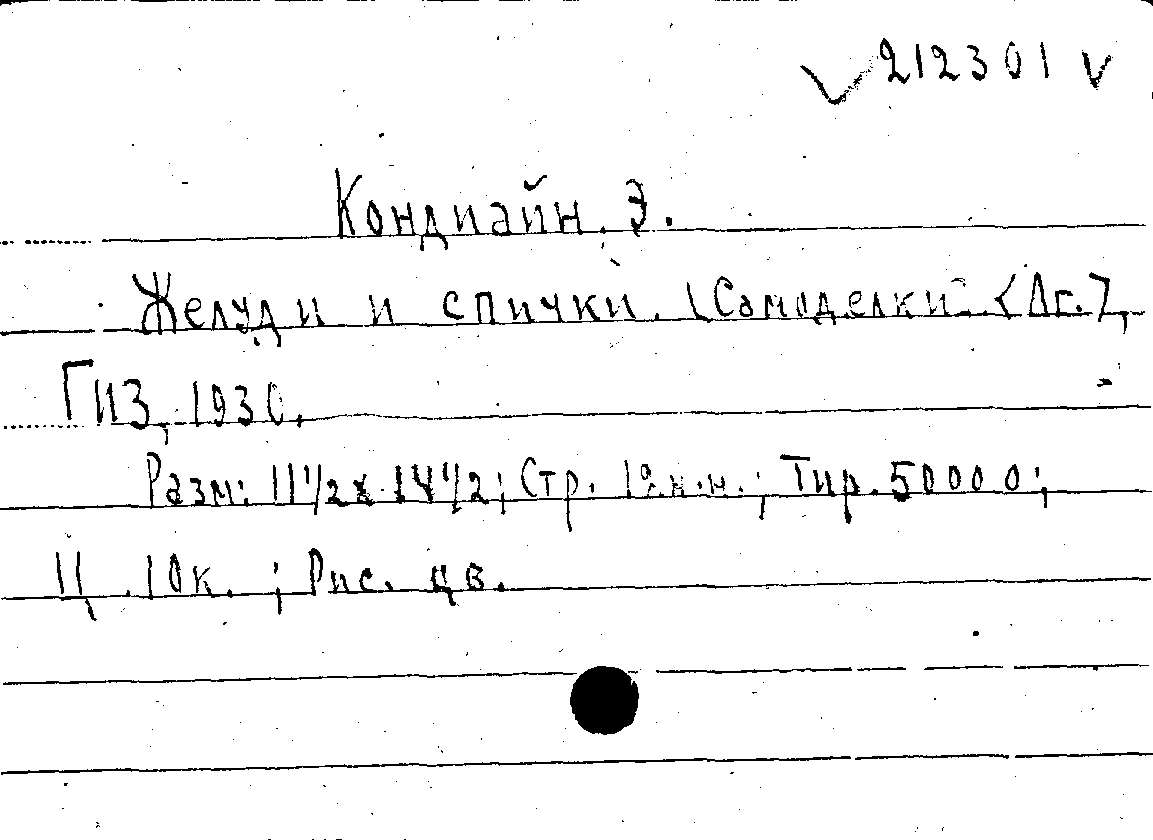 212301
Кондиайн. Э.
Желуди и спички. (Самоделки <Лг.>,
ГИЗ, 1930.
Разм: 11 1/2 х 14 1/2; Стр. 12 н.н.; Тир. 50000;
Ц. 10к.; Рис. цв.